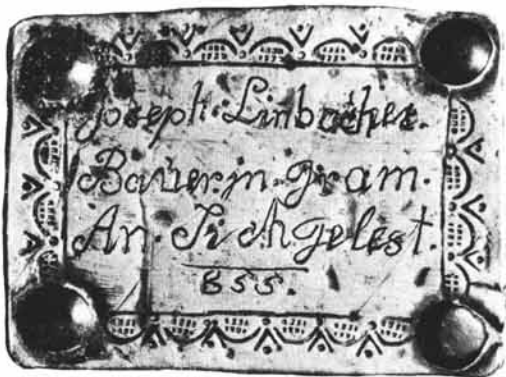 Joseph. Linbacher.
Bauer in. Gram.
An. Tichgelest.
855.